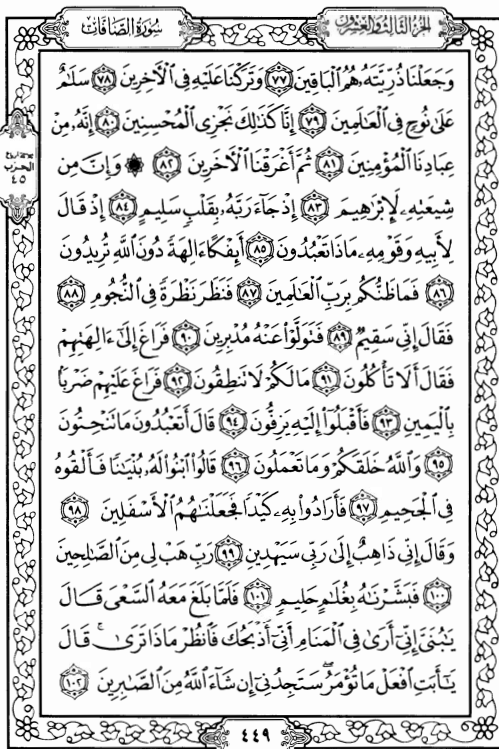 سُورَةُ الصَّافَّاتِ
الجُزْءُ الثَّالِثُ وَالعِشْرُونَ
وَجَعَلْنَا ذُرِّيَّتَهُۥ هُمُ ٱلْبَاقِينَ ٧٧ وَتَرَكْنَا عَلَيْهِ فِى ٱلْأَخِرِينَ ٧٨ سَلَٰمٌ
عَلَىٰ نُوحٍ فِى ٱلْعَٰلَمِينَ ٧٩ إِنَّا كَذَٰلِكَ نَجْزِى ٱلْمُحْسِنِينَ ٨٠ إِنَّهُۥ مِنْ
عِبَادِنَا ٱلْمُؤْمِنِينَ ٨١ ثُمَّ أَغْرَقْنَا ٱلْأَخَرِينَ ٨٢ ۞ وَإِنَّ مِن
الحِزْب
٤٥
شِيعَتِهِۦ لَإِبْرَٰهِيمَ ٨٣ إِذْ جَآءَ رَبَّهُۥ بِقَلْبٍ سَلِيمٍ ٨٤ إِذْ قَالَ
لِأَبِيهِ وَقَوْمِهِۦ مَاذَا تَعْبُدُونَ ٨٥ أَئِفْكًا ءَالِهَةً دُونَ ٱللَّهِ تُرِيدُونَ
٨٦ فَمَا ظَنُّكُم بِرَبِّ ٱلْعَٰلَمِينَ ٨٧ فَنَظَرَ نَظْرَةً فِى ٱلنُّجُومِ ٨٨
فَقَالَ إِنِّى سَقِيمٌ ٨٩ فَتَوَلَّوْا۟ عَنْهُ مُدْبِرِينَ ٩٠ فَرَاغَ إِلَىٰٓ ءَالِهَتِهِمْ
فَقَالَ أَلَا تَأْكُلُونَ ٩١ مَا لَكُمْ لَا تَنطِقُونَ ٩٢ فَرَاغَ عَلَيْهِمْ ضَرْبًۢا
بِٱلْيَمِينِ ٩٣ فَأَقْبَلُوٓا۟ إِلَيْهِ يَزِفُّونَ ٩٤ قَالَ أَتَعْبُدُونَ مَا تَنْحِتُونَ
٩٥ وَٱللَّهُ خَلَقَكُمْ وَمَا تَعْمَلُونَ ٩٦ قَالُوا۟ ٱبْنُوا۟ لَهُۥ بُنْيَٰنًا فَأَلْقُوهُ
فِى ٱلْجَحِيمِ ٩٧ فَأَرَادُوا۟ بِهِۦ كَيْدًا فَجَعَلْنَٰهُمُ ٱلْأَسْفَلِينَ ٩٨
وَقَالَ إِنِّى ذَاهِبٌ إِلَىٰ رَبِّى سَيَهْدِينِ ٩٩ رَبِّ هَبْ لِى مِنَ ٱلصَّٰلِحِينَ
١٠٠ فَبَشَّرْنَٰهُ بِغُلَٰمٍ حَلِيمٍ ١٠١ فَلَمَّا بَلَغَ مَعَهُ ٱلسَّعْىَ قَالَ
يَٰبُنَىَّ إِنِّىٓ أَرَىٰ فِى ٱلْمَنَامِ أَنِّىٓ أَذْبَحُكَ فَٱنظُرْ مَاذَا تَرَىٰ ۚ قَالَ
يَٰٓأَبَتِ ٱفْعَلْ مَا تُؤْمَرُ ۖ سَتَجِدُنِىٓ إِن شَآءَ ٱللَّهُ مِنَ ٱلصَّٰبِرِينَ ١٠٢
٤٤٩